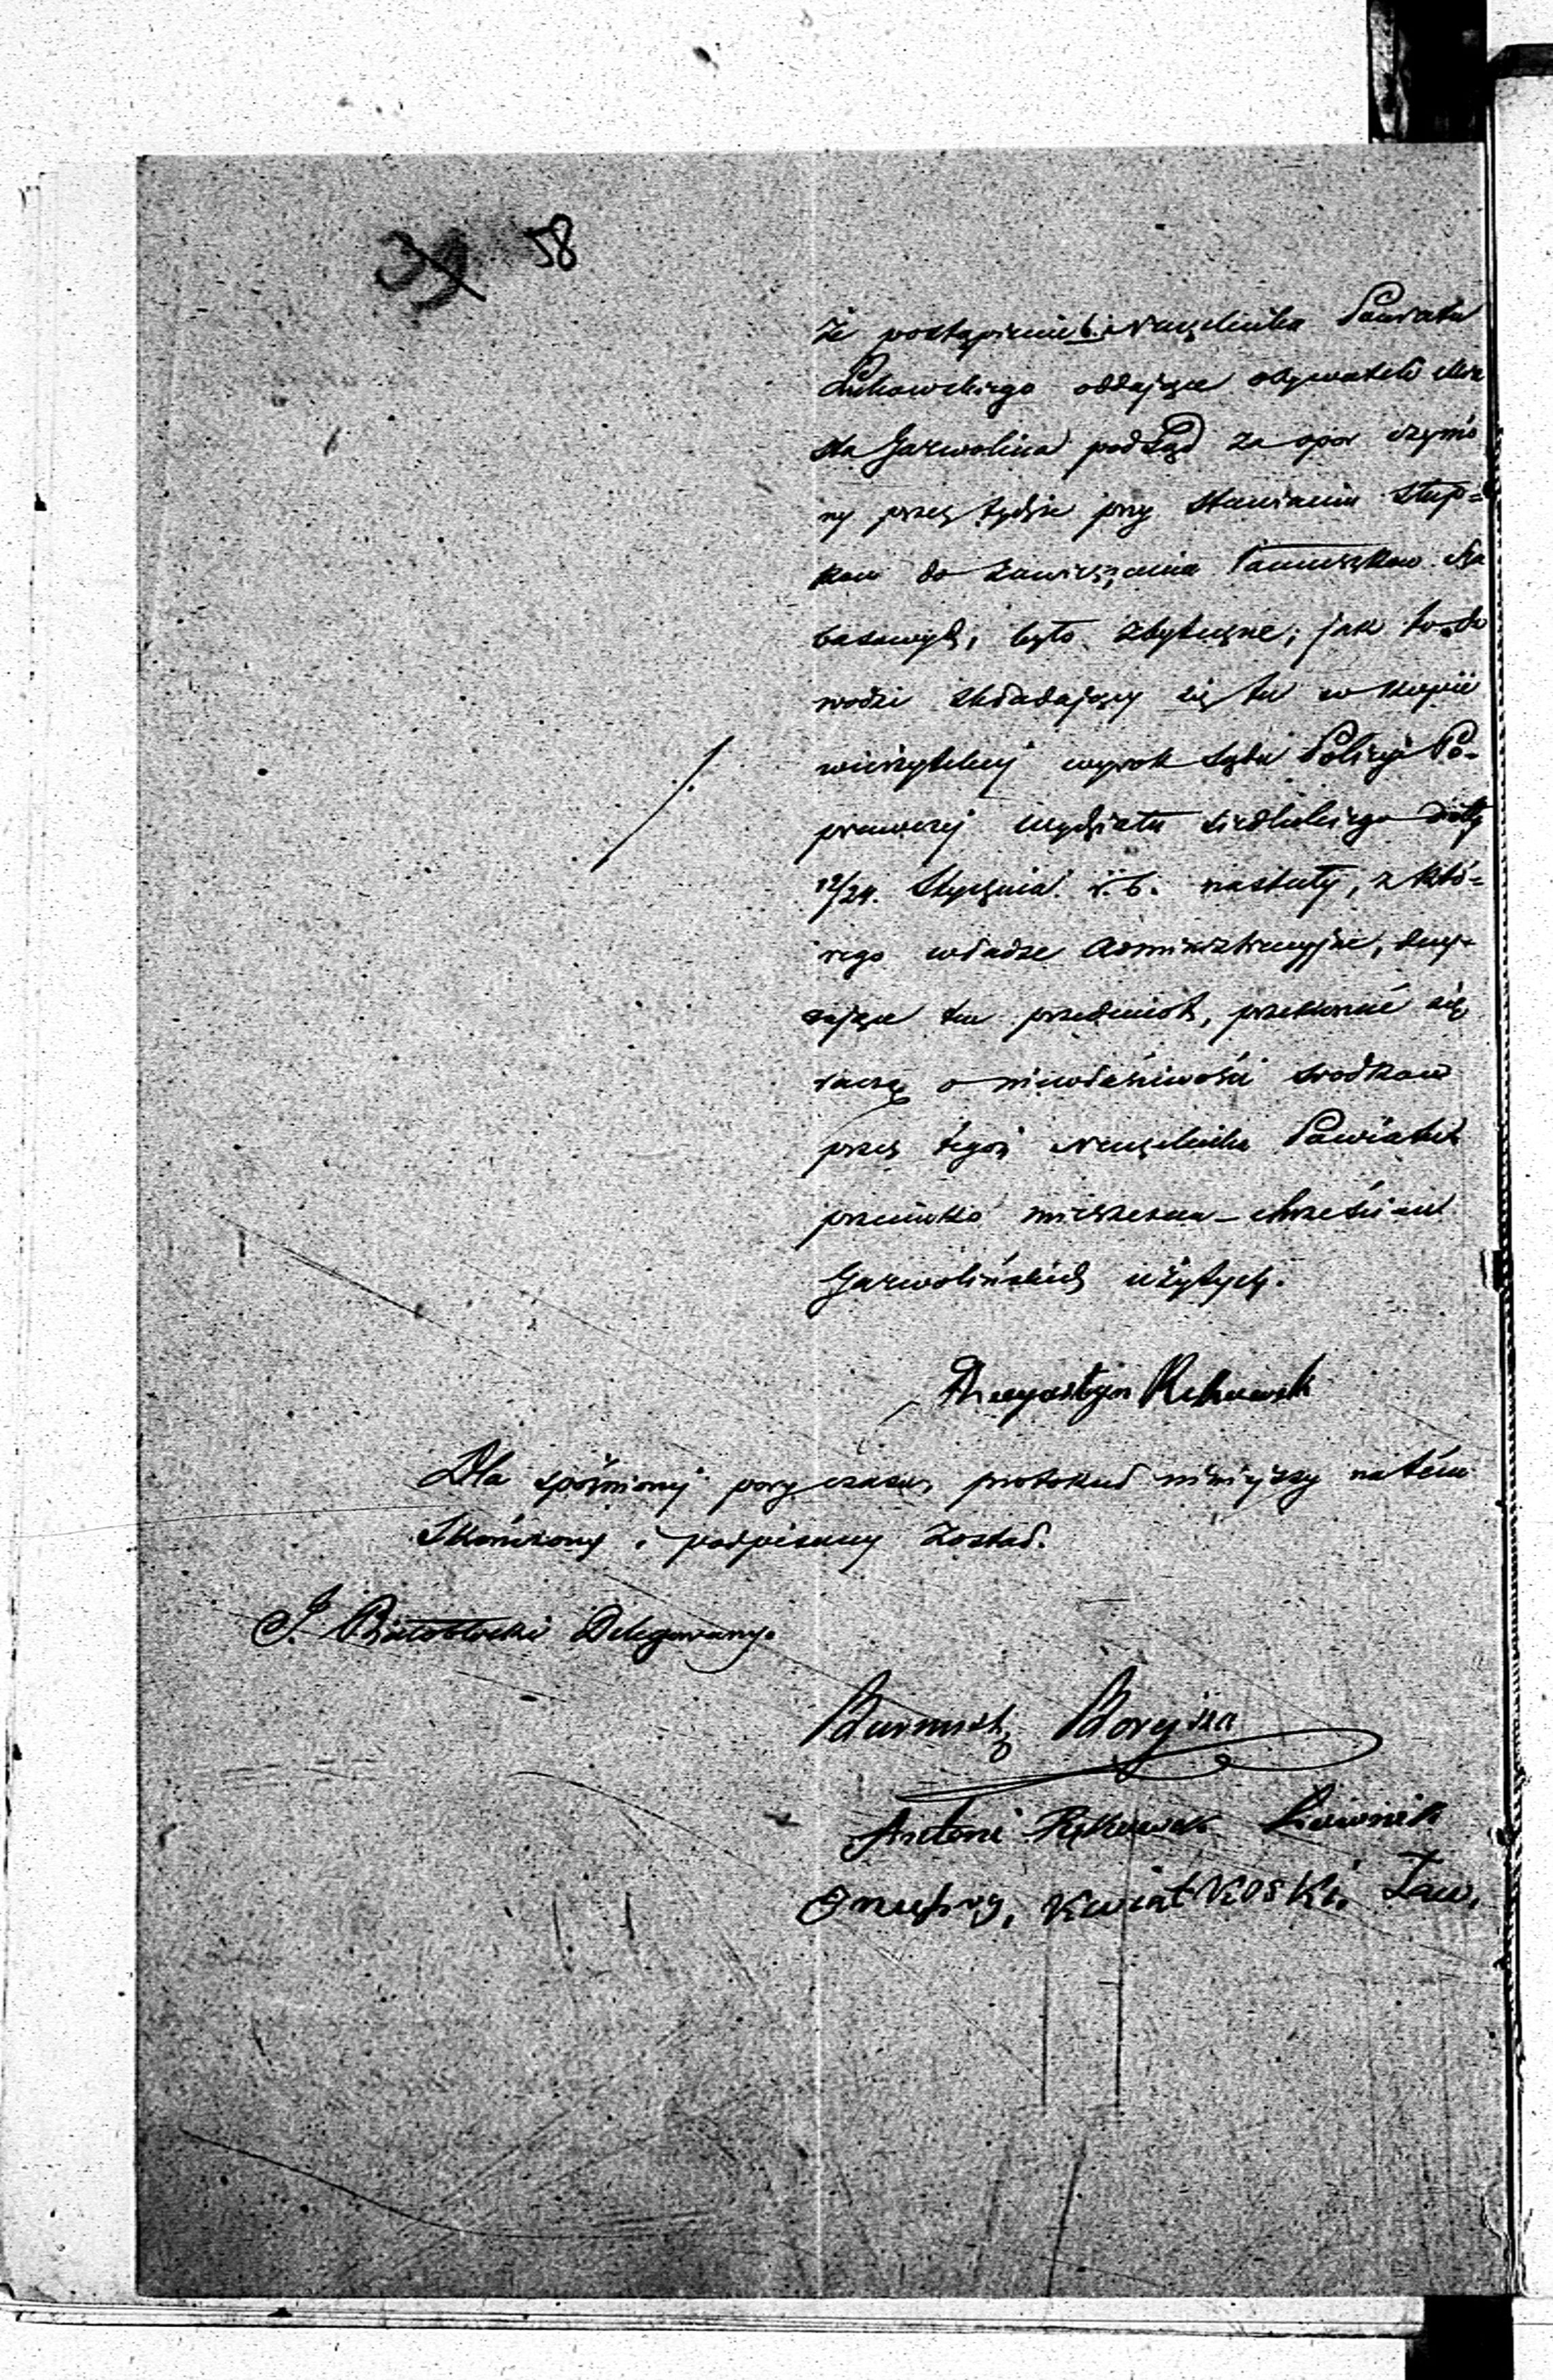 39 58
że postąpienie b. Naczelnika Powiatu
Łukowskiego oddające obywateli mia
sta Garwolina pod Sąd za opor czynio
ny przez tychże przy stawianiu słup=
kow do zawieszania Łańcuszkow Sza
basowych, było zbyteczne; jak to do
wodzi składający się tu w kopii
wierzytelnej wyrok Sądu Policyi Po=
prawczej Wydziału Siedleckiego daty
12/24. Stycznia r. b. nastały, z któ=
rego władze Administracyjne, decy=
dujące ten przedmiot, przekonać się
raczą o niewłaściwości srodkow
przez tegoż Naczelnika Powiatu
przeciwko mieszczan-chrześcian
Garwolińskich użytych.
Rękawek
Dla spóźnionej pory czasu, protokuł niniejszy na tém
skończony i podpisany został.
J. Białobłocki Delegowany.
Burmistrz Borejsza
Antoni Rękawek Ławnik
Onufry, Kwiatkoski, Ław,